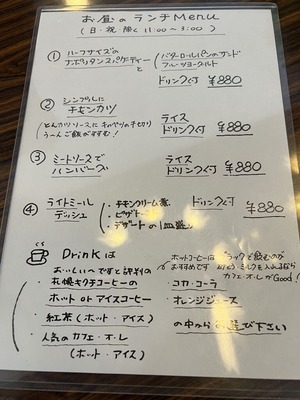 お昼のランチMenu
(日・祝 除く 11:00〜3:00)
① ハーフサイズの
ナポリタンスパゲティーと
バターロールパンのサンド
フルーツヨーグルト
ドリンク付 ¥880
② シンプルに
チキンカツ
ライス
ドリンク付 ¥880
とんカツソースに キャベツの千切り
う〜んご飯がすすむ!
③ ミートソースで
ハンバーグ
ライス
ドリンク付 ¥880
④ ライトミール
デッシュ
・チキンクリーム煮
・ピザトースト
・デザートの1皿
ドリンク付 ¥880
Drinkは
おいしいーですと評判の
札幌キクチコーヒーの
ホット or アイスコーヒー
・紅茶(ホット・アイス)
・人気のカフェ・オ・レ
(ホット・アイス)
ホットコーヒーは ブラックで飲むのが
おすすめです ミルクを入れるなら
カフェ・オ・レがGood!
・コカ・コーラ
・オレンジジュース
の中からお選び下さい